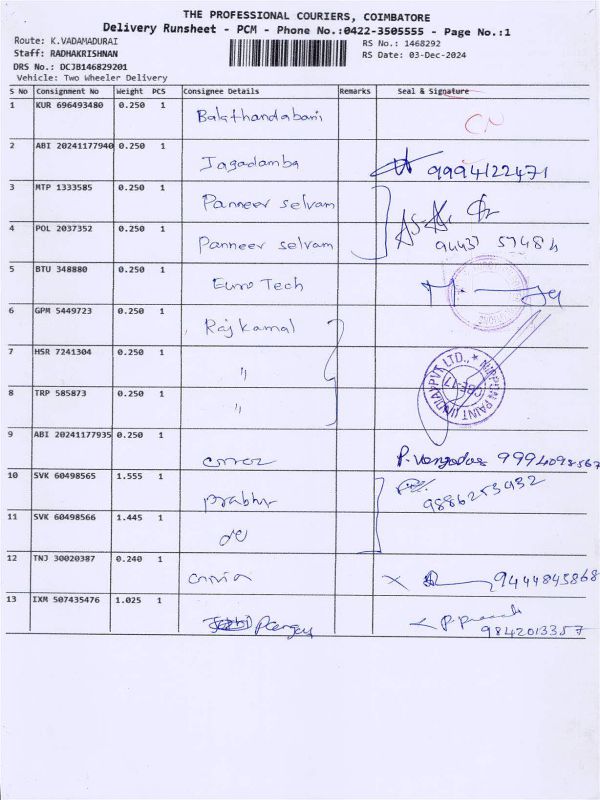 THE PROFESSIONAL COURIERS, COIMBATORE
Delivery Runsheet - PCM - Phone No.:0422-3505555 - Page No.:1
Route: K.VADAMADURAI
RS No.: 1468292
Staff: RADHAKRISHNAN
RS Date: 03-Dec-2024
DRS No.: DCJB146829201
Vehicle: Two Wheeler Delivery
S No Consignment No Weight PCS Consignee Details Remarks Seal & Signature
1 KUR 696493480 0.250 1 Balathandabani CN
2 ABI 20241177940 0.250 1 Jagadamba 9994122471
3 MTP 1333585 0.250 1 Panneer selvam
4 POL 2037352 0.250 1 Panneer selvam 94437 57484
5 BTU 348880 0.250 1 Euro Tech
6 GPM 5449723 0.250 1 Rajkamal
7 HSR 7241304 0.250 1 "
NIPPON PAINT (INDIA) PVT LTD., *
CBE-17
8 TRP 585873 0.250 1 "
9 ABI 20241177935 0.250 1 9994098567
10 SVK 60498565 1.555 1 prabhu 9886253932
11 SVK 60498566 1.445 1 do
12 TNJ 30020387 0.240 1 9444845868
13 IXM 507435476 1.025 1 9842013357